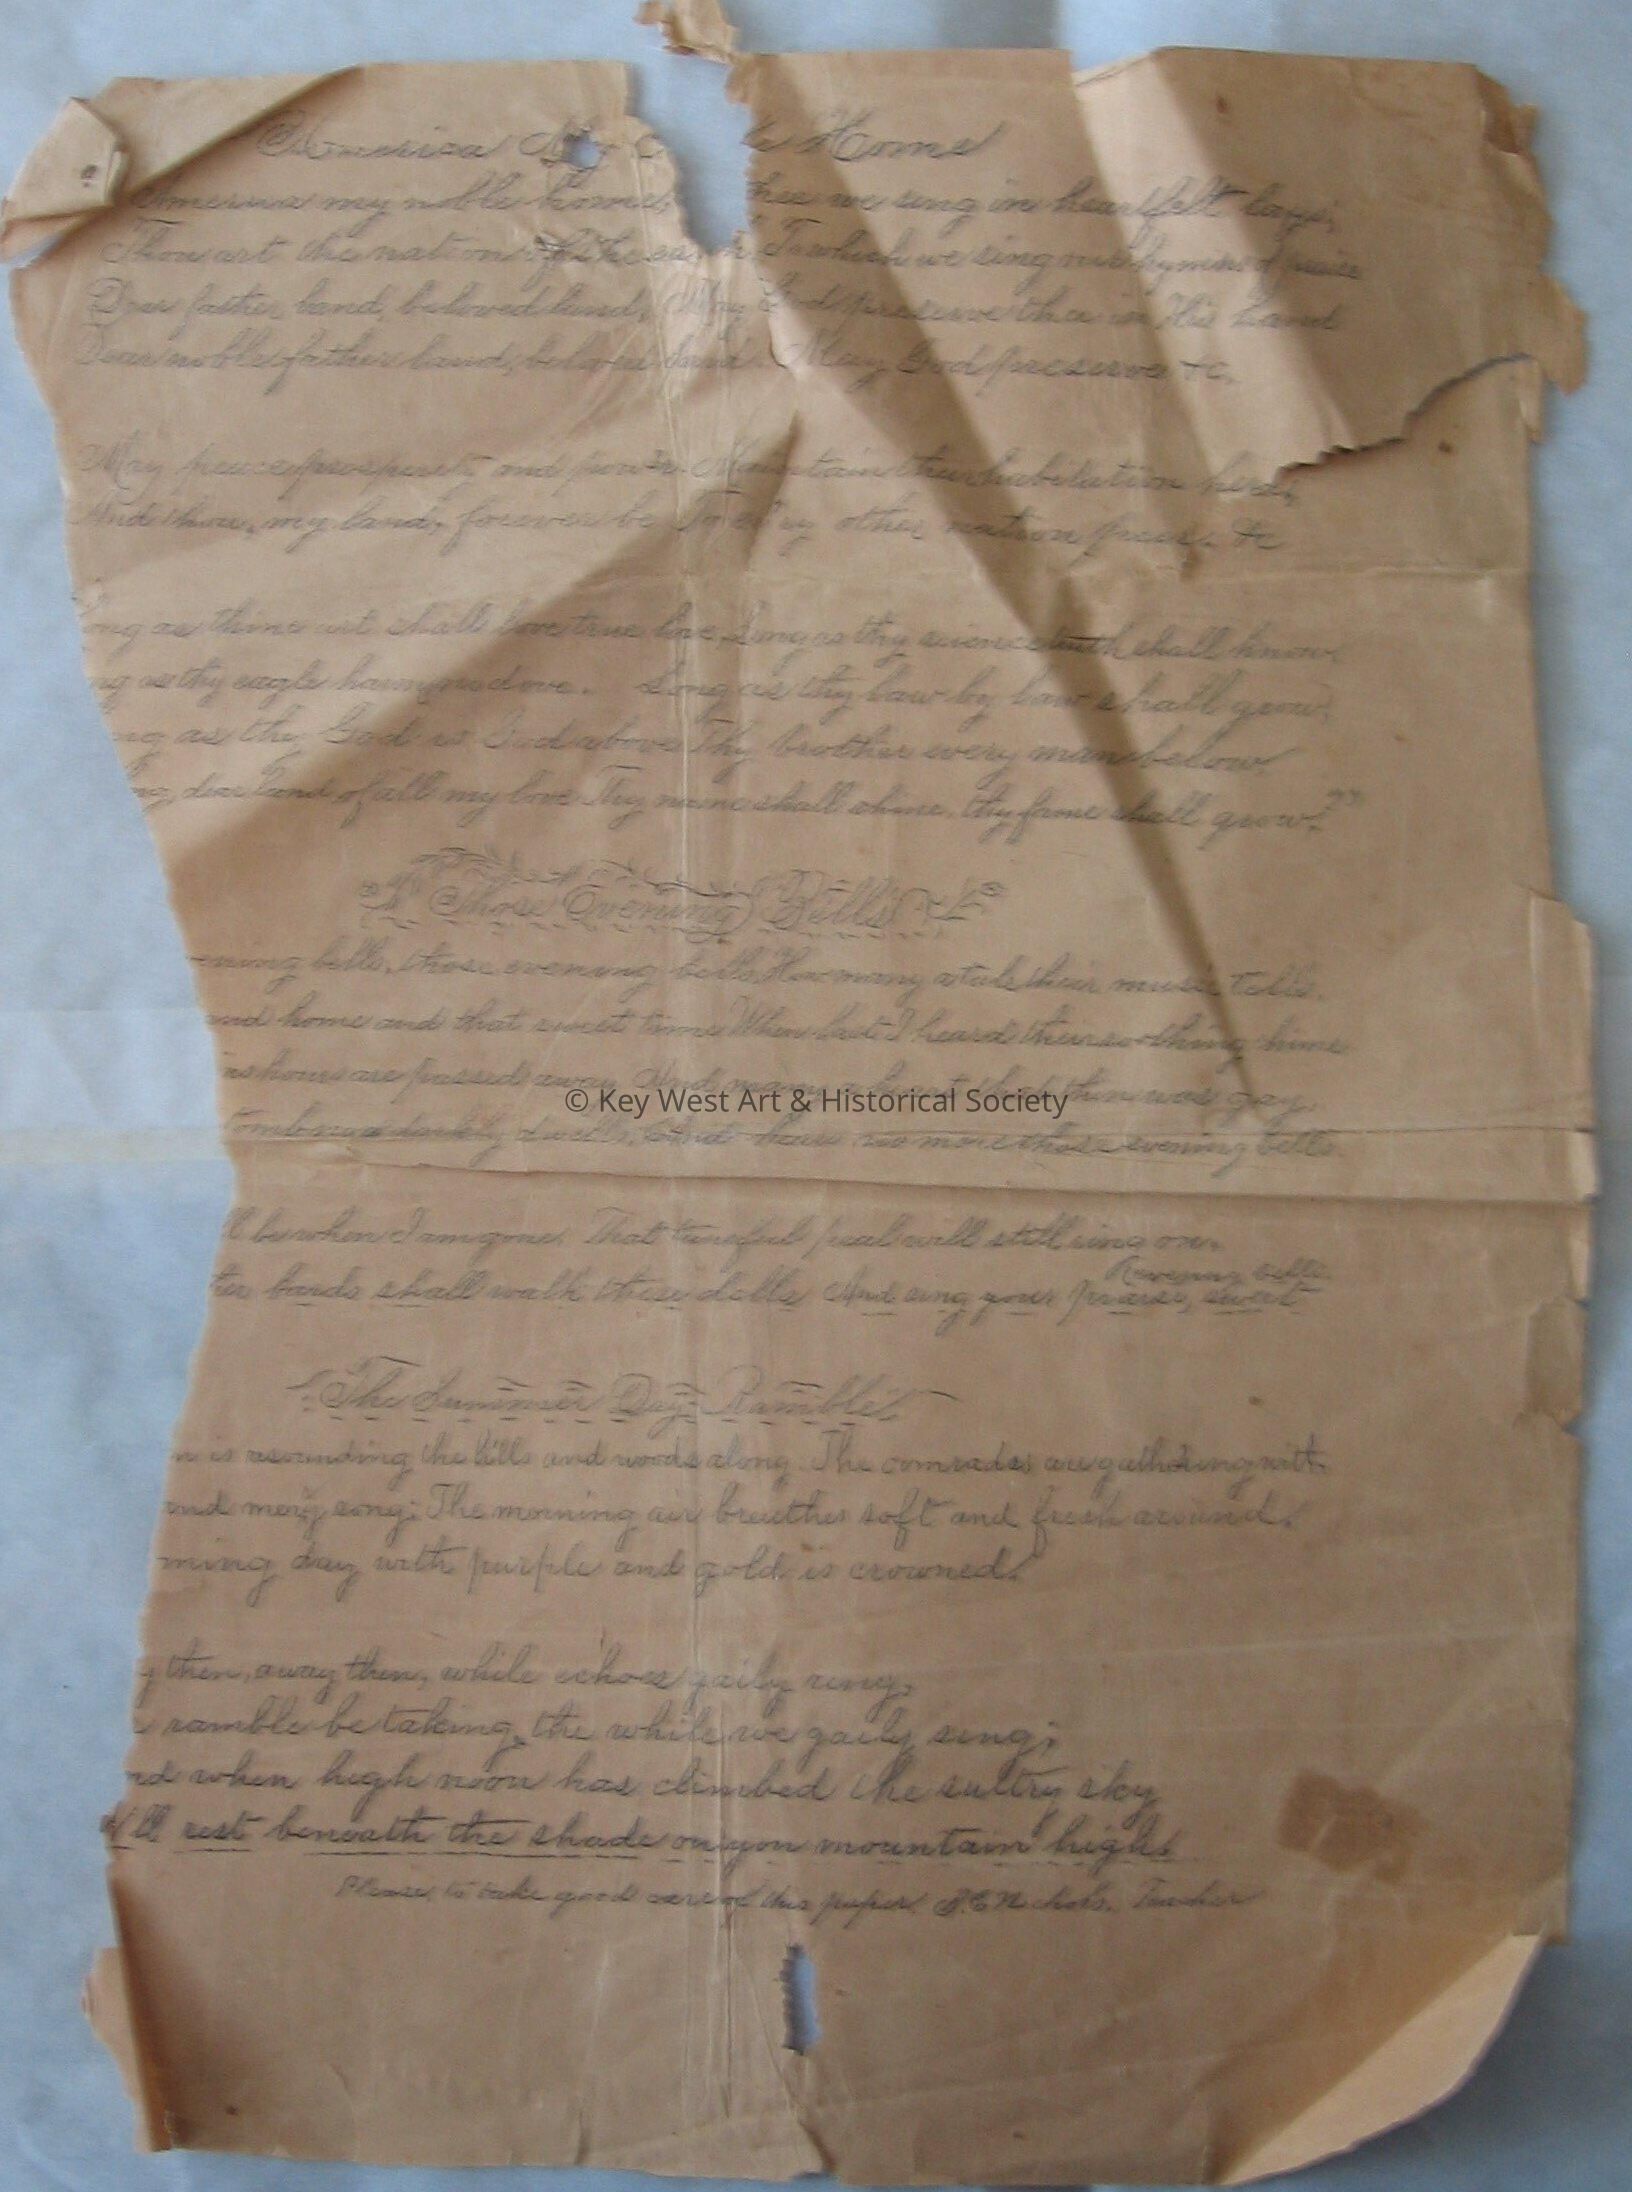 America My Home
America my noble home, thee we sing in heartfelt lays;
Thou art the nation of the earth To which we sing our hymns of praise
Dear father land, beloved land, May God preserve thee in His hand
Dear noble father land, beloved land. May God preserve &c.
May peace prosperity and power Maintain their habitation here,
And thou, my land, forever be To every other nation &c
ong as thine art shall love true love, Long as thy science truth shall know
ng as thy eagle harms no dove. Long as thy law by law shall grow,
ng as thy God is God above Thy brother every man below.
ng, dear land of all my love Thy name shall shine, thy fame shall grow."
Those Evening Bells
ening bells, those evening bells, How many a tale their music tells.
and home and that sweet time When last I heard their soothing chime
us hours are passed away And many a heart that then was gay,
© Key West Art & Historical Society
tomb now darkly dwells, And hears no more those evening bells
ll be when I am gone. That tuneful peal will still ring on.
evening bells.
her bards shall walk these dells And sing your praise, sweet
The Summer Day Ramble.
n is resounding the hills and woods along. The comrades are gathering with
and merry song; The morning air breathes soft and fresh around.
ming day with purple and gold is crowned.
y then, away then, while echoes gaily ring,
ramble be taking, the while we gaily sing;
nd when high noon has climbed the sultry sky
'll rest beneath the shade on yon mountain high.
Please to take good care of this paper. Nichols, Teacher